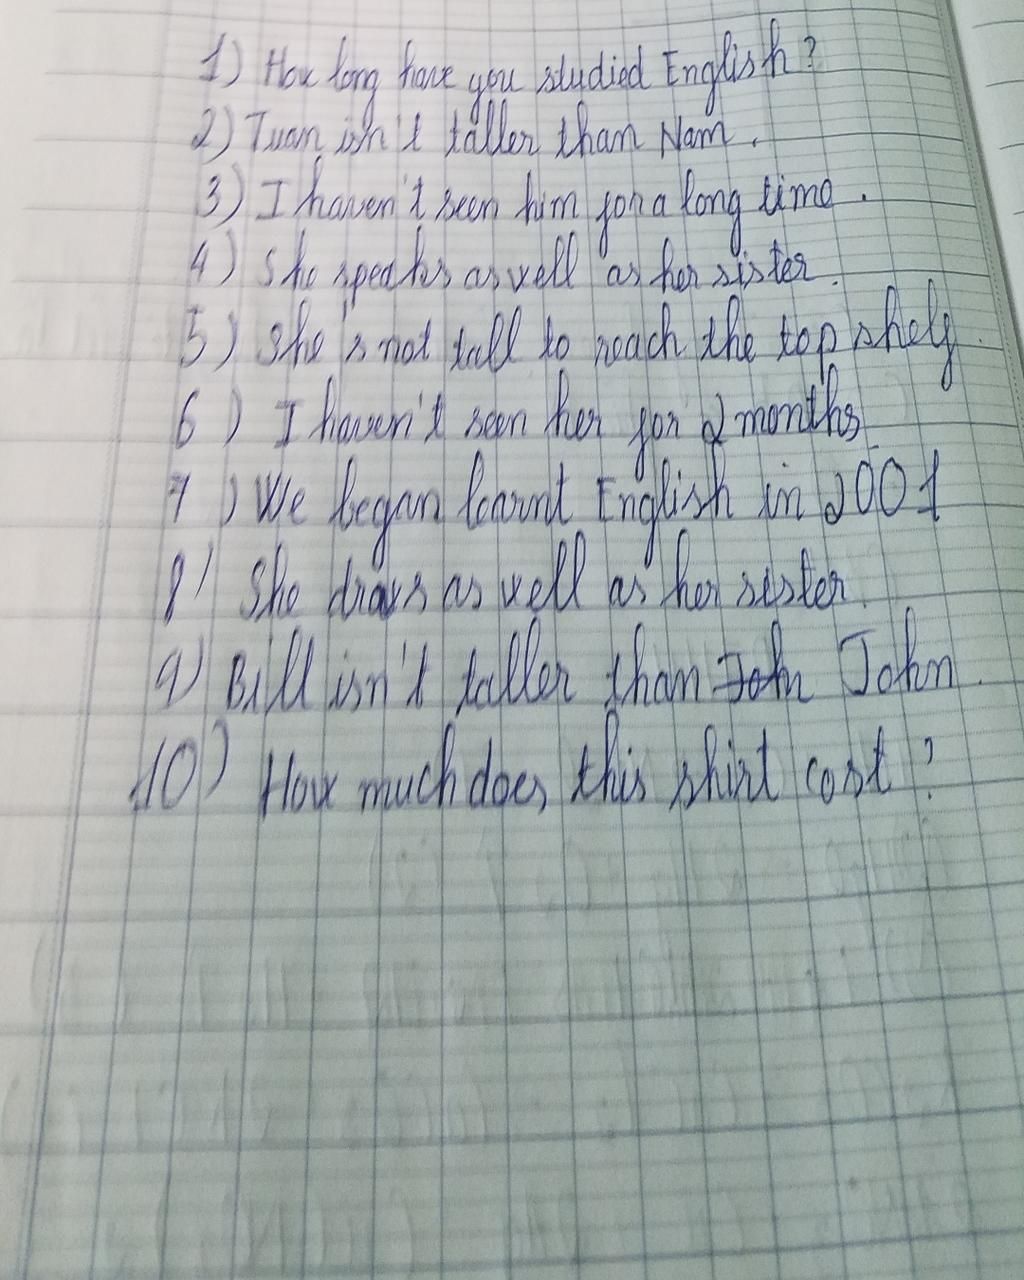 1) How long have you studied English?
2) Tuan isn't taller than Nam.
3) I haven't seen him for a long time.
4) She speaks as well as her sister.
5) She's not tall to reach the top shelf.
6) I haven't seen her for 2 months
7) We began learnt English in 2001
8) She draws as well as her sister.
9) Bill isn't taller than John John.
10) How much does this shirt cost?